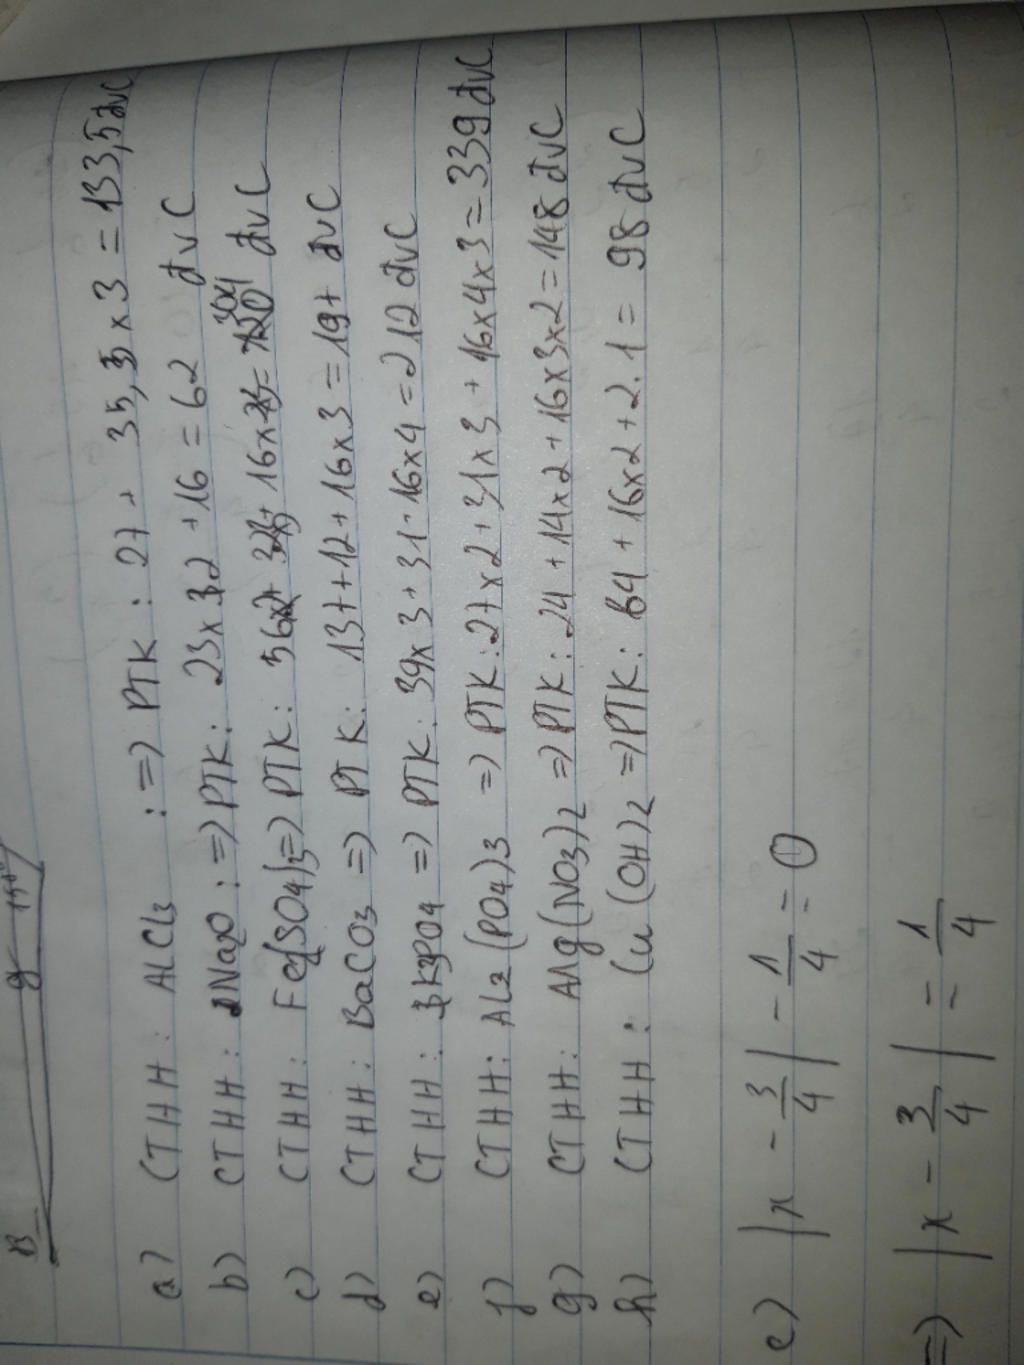 B
a) CTHH: AlCl3 :=> PTK: 27 + 35,5 x 3 = 133,5 đvC
b) CTHH: Na2O :=> PTK: 23 x 2 + 16 = 62 đvC
c) CTHH: Fe(SO4)3=> PTK: 56 + 16 x = 304 đvC
d) CTHH: BaCO3 => PTK: 137+12+16x3=197 đvC
e) CTHH: K3PO4 => PTK: 39x3+31+16x4=212 đvC
f) CTHH: Al2(PO4)3 => PTK:27x2+31x3+16x4x3=339đvC
g) CTHH: Mg(NO3)2 =>PTK:24+14x2+16x3x2=148 đvC
h) CTHH: Cu(OH)2 =>PTK: 64+16x2+2.1= 98 đvC
e) |x - 3/4| - 1/4 = 0
=> |x - 3/4| = 1/4